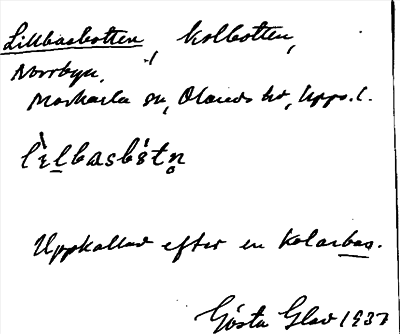 Lillbasbotten, kolbotten,
Norrbyn,
Morkarla sn, Olands hd, Upps. l.
lìlbasbót̥n̥
Uppkallad efter en kolarbas.
Gösta Glad 1937